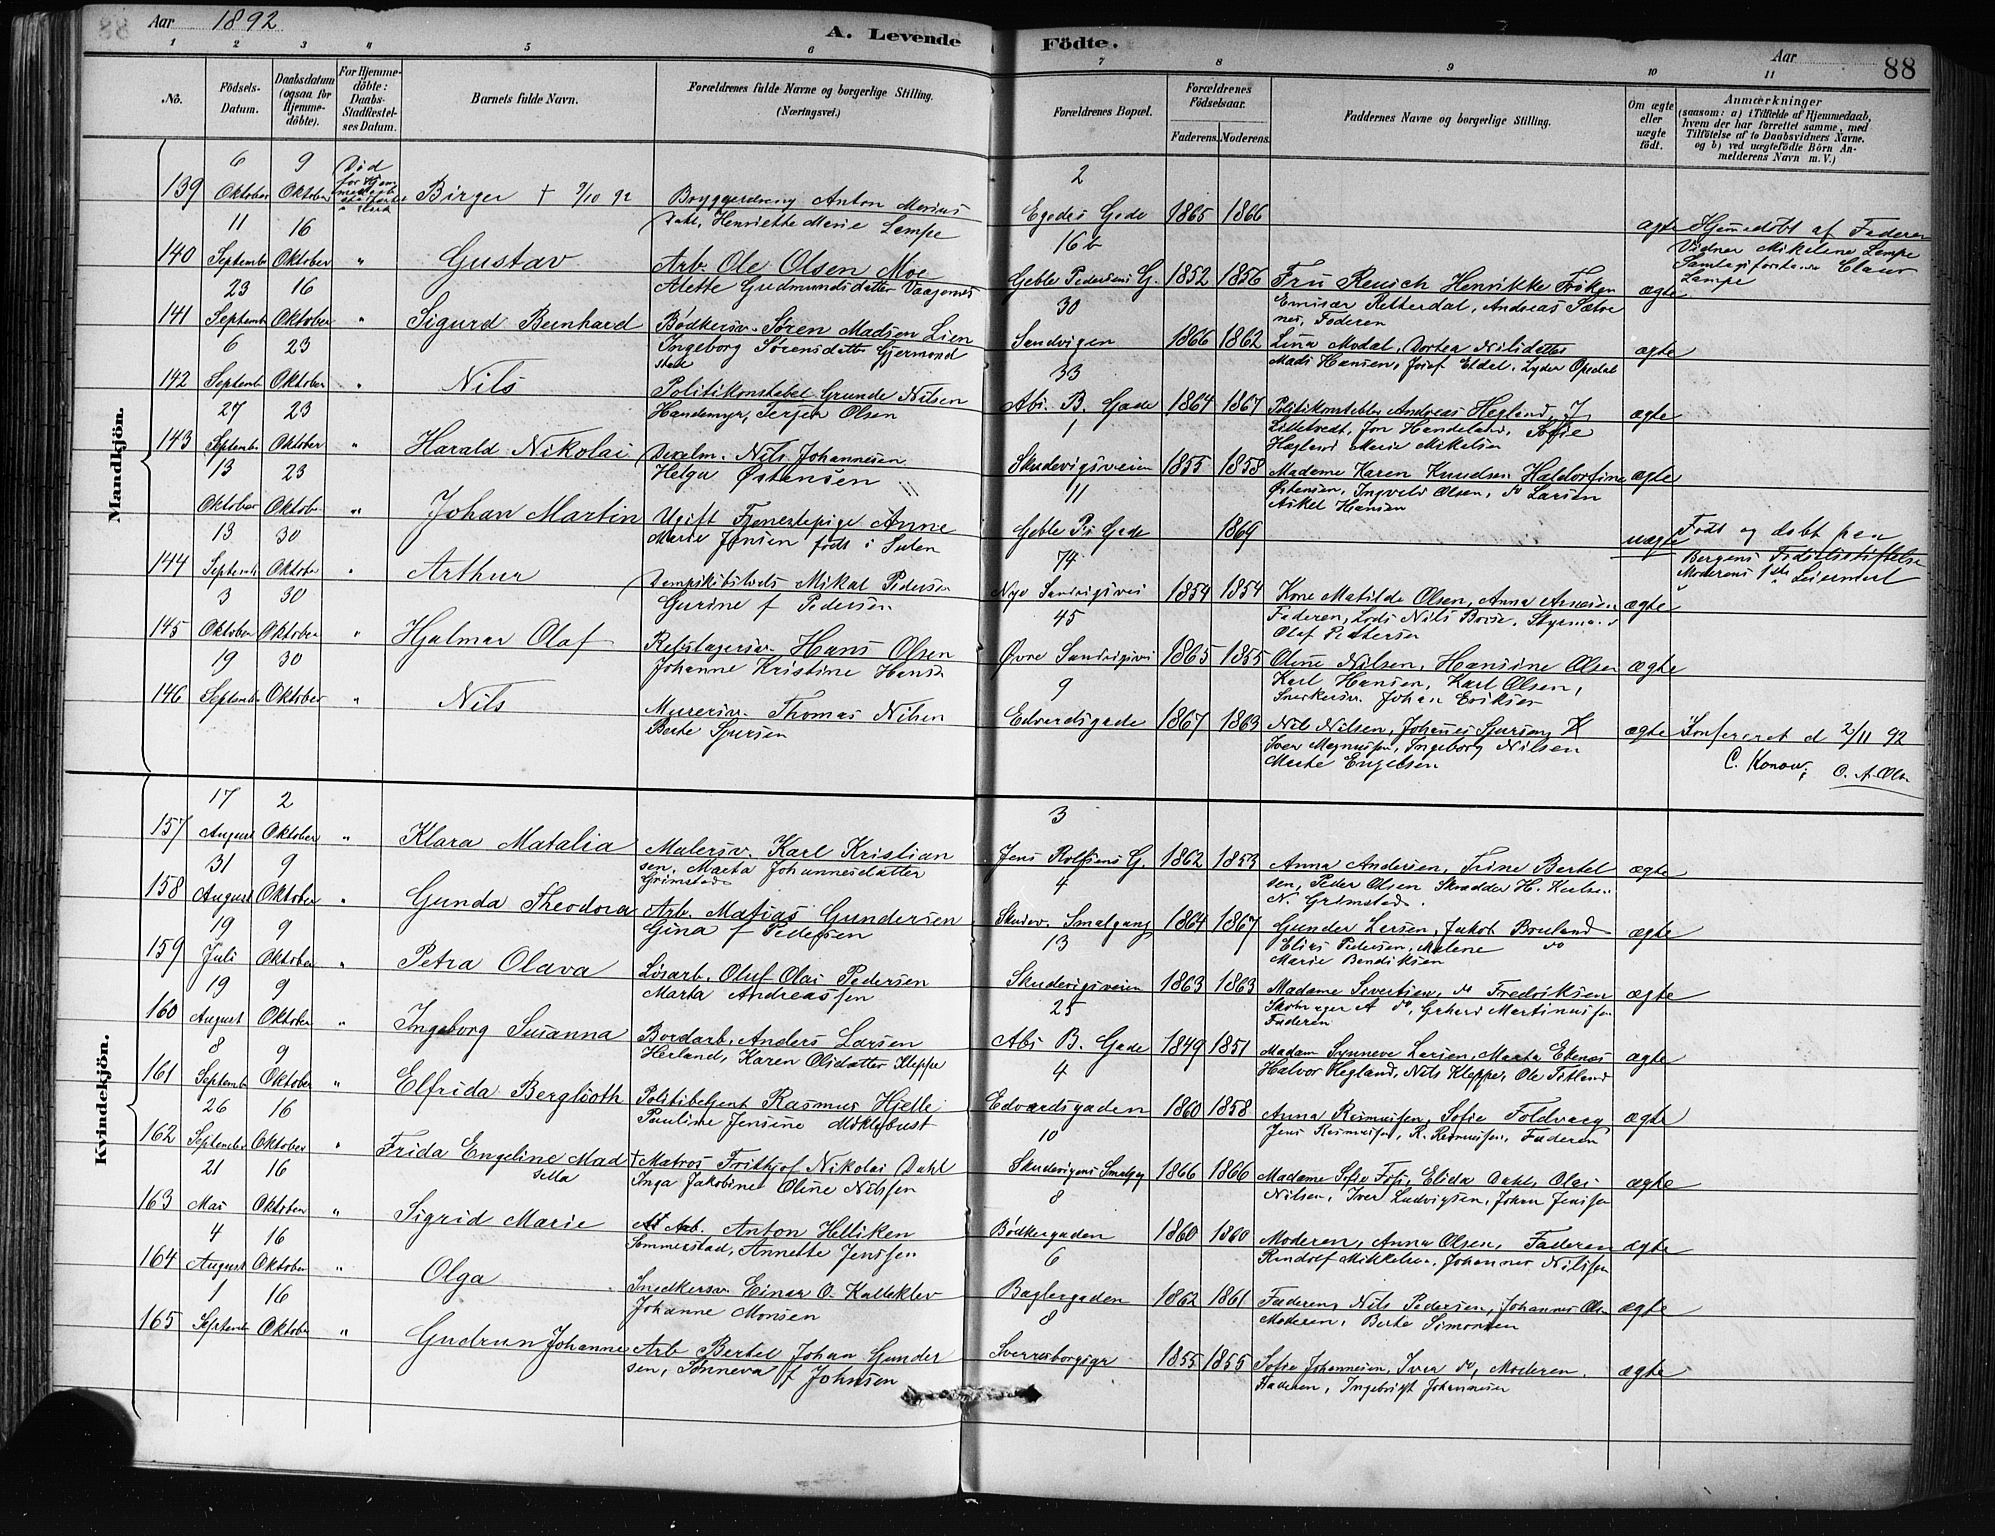 Aar 1892
A. Levende Födte.
Aar 88
1 2 3 4 5 6 7 8 9 10 11
No.
Födsels-Datum.
Daabsdatum (ogsaa for Hjemme-döbte).
For Hjemme-döbte: Daabs-Stadfæstel-ses Datum.
Barnets fulde Navn.
Forældrenes fulde Navne og borgerlige Stilling. (Næringsvei.)
Forældrenes Bopæl.
Forældrenes Födselsaar.
Faderens. Moderens.
Faddernes Navne og borgerlige Stilling.
Om ægte eller uægte födt.
Anmærkninger (saasom: a) i Tilfælde af Hjemmedaab, hvem der har forrettet samme, med Tilföielse af to Daabsvidners Navne. og b) ved uægtefödte Börn An-melderens Navn m. V.)
Mandkjön.
139 6 Oktober 9 Oktober Död Birger + 9/10 92 Anton Marius
Henriette Marie Lempe 2 Egedes Gade 1865 1866 ægte Hjemmedöbt af Faderen
Vidner Mikeline Lempe
Lempe
140 11 September 16 Oktober " Gustav Arb. Ole Olsen Moe
Alette Gudmundsdatter 16 b Geble Pedersens G. 1852 1856 Fru Reusch Henrikke
Andreas
Faderen ægte
141 23 September 16 Oktober " Sigurd Bernhard Bödkersv. Sören Madsen Lien
Ingeborg Sörensdatter 30 Sandvigen 1866 1862 Lina Modal, Dortea Nilsdatter
Mads Hansen, Josef ægte
142 6 September 23 Oktober " Nils Politikonstabel Grunde Nilsen
Olsen 33 Abs. B. Gade 1864 1867 Politikonstabler Andreas Hegland
Hegland Marie Mikelsen ægte
143 27 September 23 Oktober " Harald Nikolai Nils Johannesen
Helga Östensen 1 Skudevigsveien 1855 1858 Madame Karen Knudsen
Östensen, Ingvald Olsen, do Larsen
Hansen ægte
13 Oktober 23 Oktober " Johan Martin Ugift Tjenestepige Anne
Marie Jensen född i Sulen 11 Geble Ps Gade 1869 uægte Född og döbt paa
Bergens Födselsstiftelse
Moderens 1ste Leiermaal
144 13 September 30 Oktober " Arthur Mikal Pedersen
Gurine f Pedersen 74 Nye Sandvigsvei 1854 1854 Kone Matilde Olsen, Anna
Faderen, Lods Nils
Olaf Pettersen ægte
145 3 Oktober 30 Oktober " Hjalmar Olaf Rebslagersv. Hans Olsen
Johanne Kristine Hansen 45 Övre Sandvigsvei 1865 1855 Oline Nilsen, Hansine Olsen
Karl Hansen, Karl Olsen,
Snedkersv. Johan Eriksen ægte
146 19 September 30 Oktober " Nils Murersv. Thomas Nilsen
Berte 9 Edvardsgade 1867 1863 Nils Nilsen, Johannes
Iver Magnussen, Ingeborg Nilsen
Engelsen ægte Konfereret d 2/11 92
C. Konow; O. A. Olsen
Kvindekjön.
157 17 August 2 Oktober " Klara Matalia Malersv. Karl Kristian
sen, Marta Johannesdatter
Grimstad 3 Jens Rolfsens G. 1862 1853 Anna Andersen, Trine Bertel
sen, Peder Olsen Skrædder H.
N. Grimstad. ægte
158 31 August 9 Oktober " Gunda Theodora Arb. Matias Gundersen
Gina f Pedersen 4 Skudev. Smalgang 1864 1867 Gunder Larsen, Jakob
Elias Pedersen, Malene do
Marie Bendiksen ægte
159 19 Juli 9 Oktober " Petra Olava Lösarb. Oluf Olai Pedersen
Marta Andreassen 13 Skudevigsveien 1863 1863 Madame Sivertsen, do Fredriksen
Skomager A do, Gerhard Martinussen
Faderen ægte
160 19 August 9 Oktober " Ingeborg Susanna Bordarb. Anders Larsen
Herland, Karen Olsdatter Kleppe 25 Abs B. Gade 1849 1851 Madam Synneve Larsen, Marta Ekenes
Halvor Hegland, Nils Kleppe, Ole Titland ægte
161 8 September 9 Oktober " Elfrida Bergliöth Politibetjent Rasmus Hjelle
Pauline Jensine Myklebust 4 Edvardsgaden 1860 1858 Anna Rasmussen, Sofie
Jens Rasmussen, R. Rasmussen, Faderen ægte
162 26 September 16 Oktober " Frida Engeline Mad
sella + Matros Frithjof Nikolai Dahl
Inga Jakobine Oline Nilssen 10 Skudevigens Smalgg 1866 1866 Madame Sofie Elida Dahl, Olai
Nilsen, Iver Ludvigsen, Johan Jenssen ægte
163 21 Mai 16 Oktober " Sigrid Marie Arb. Anton Helliken
Sommerstad, Annette Jenssen 8 Bödkergaden 1860 1860 Moderen, Anna Olsen, Faderen
Mikkelsen, Johannes Nilssen ægte
164 4 August 16 Oktober " Olga Snedkersv. Einar O. Kalleklev
Johanne Monsen 6 Baglergaden 1862 1861 Faderen, Nils Pedersen, Johannes Olsen
Moderen, Berte Simonsen ægte
165 1 September 16 Oktober " Gudrun Johanne Arb Bertel Johan Gunder
sen, Sönneva f Johnsen 8 Sverresborgsgr 1855 1855 Sofie Johannesen, Iver do, Moderen.
Faderen, Ingebrigt Johannesen ægte